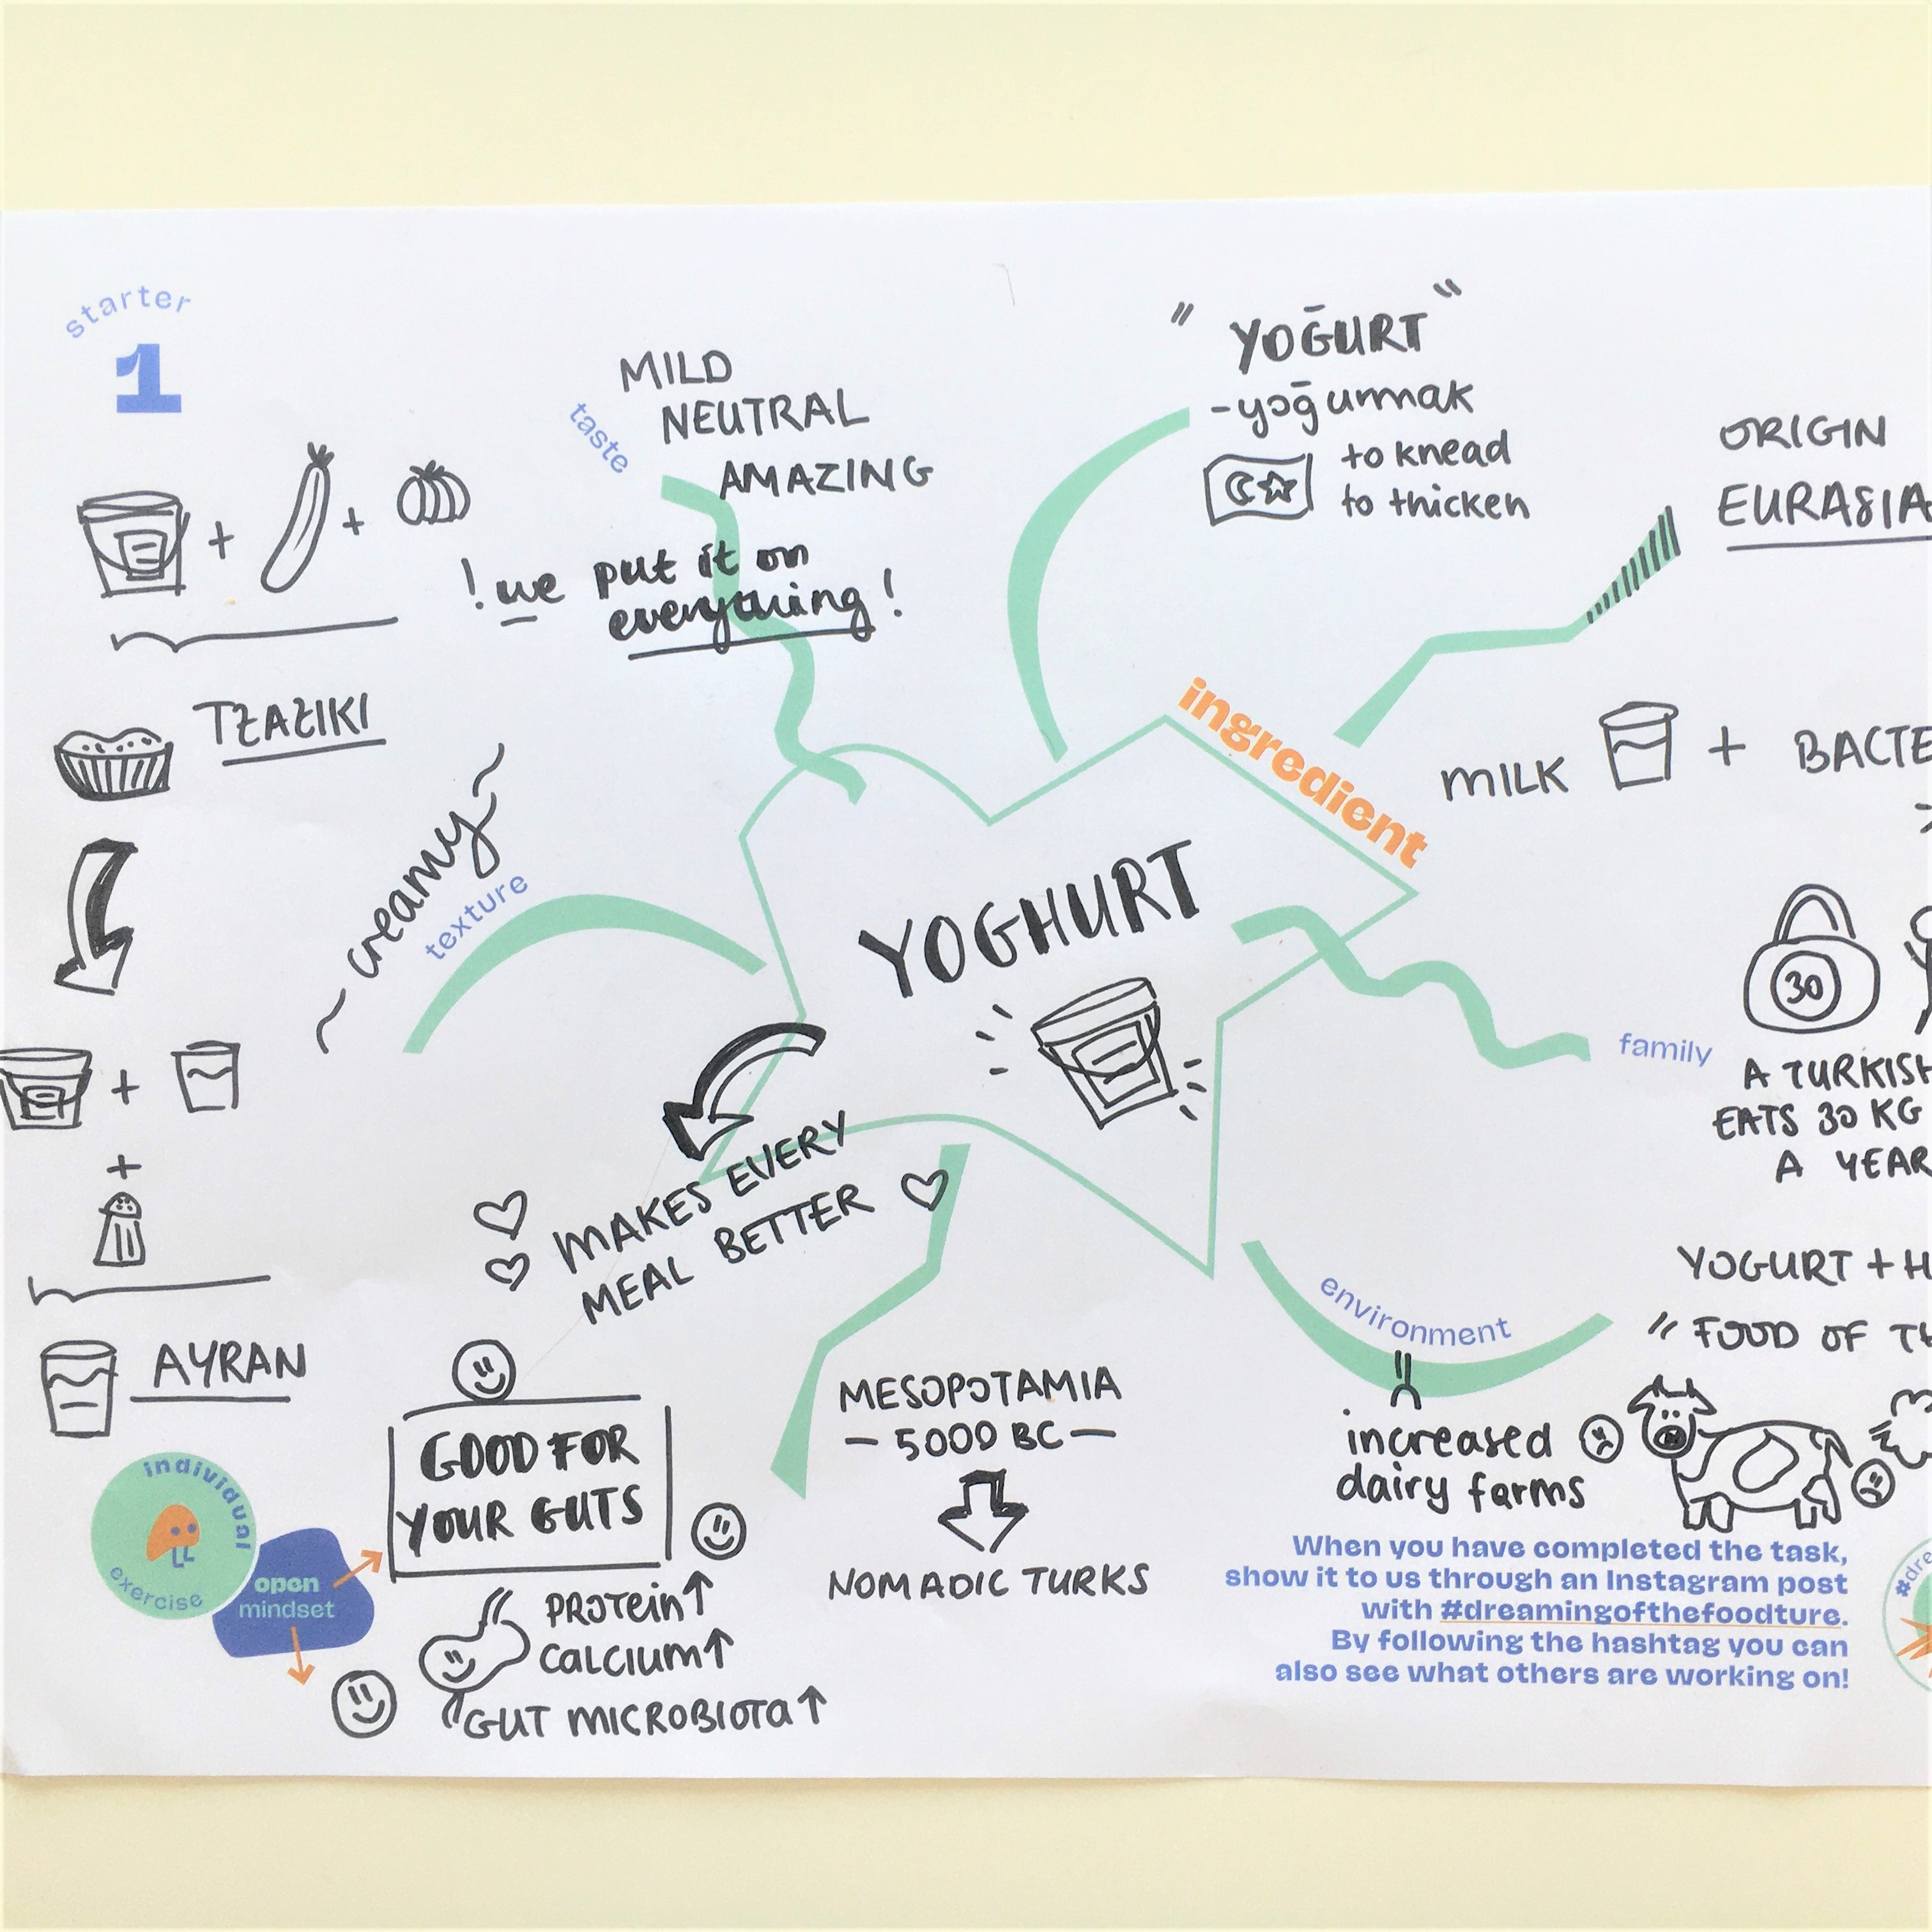 starter
1
TZAZIKI
AYRAN
taste
MILD
NEUTRAL
AMAZING
! we put it on
everything!
~ creamy ~
texture
" YOĞURT "
- yoğurmak
to knead
to thicken
ORIGIN
EURASIA
ingredient
MILK + BACTE
YOGHURT
30
family
A TURKISH
EATS 30 KG
A YEAR
MAKES EVERY
MEAL BETTER
GOOD FOR
YOUR GUTS
PROTEIN↑
CALCIUM↑
GUT MICROBIOTA↑
MESOPOTAMIA
- 5000 BC -
NOMADIC TURKS
environment
YOGURT + H
" FOOD OF TH
increased
dairy farms
individual
exercise
open
mindset
When you have completed the task,
show it to us through an Instagram post
with #dreamingofthefoodture.
By following the hashtag you can
also see what others are working on!
#dre